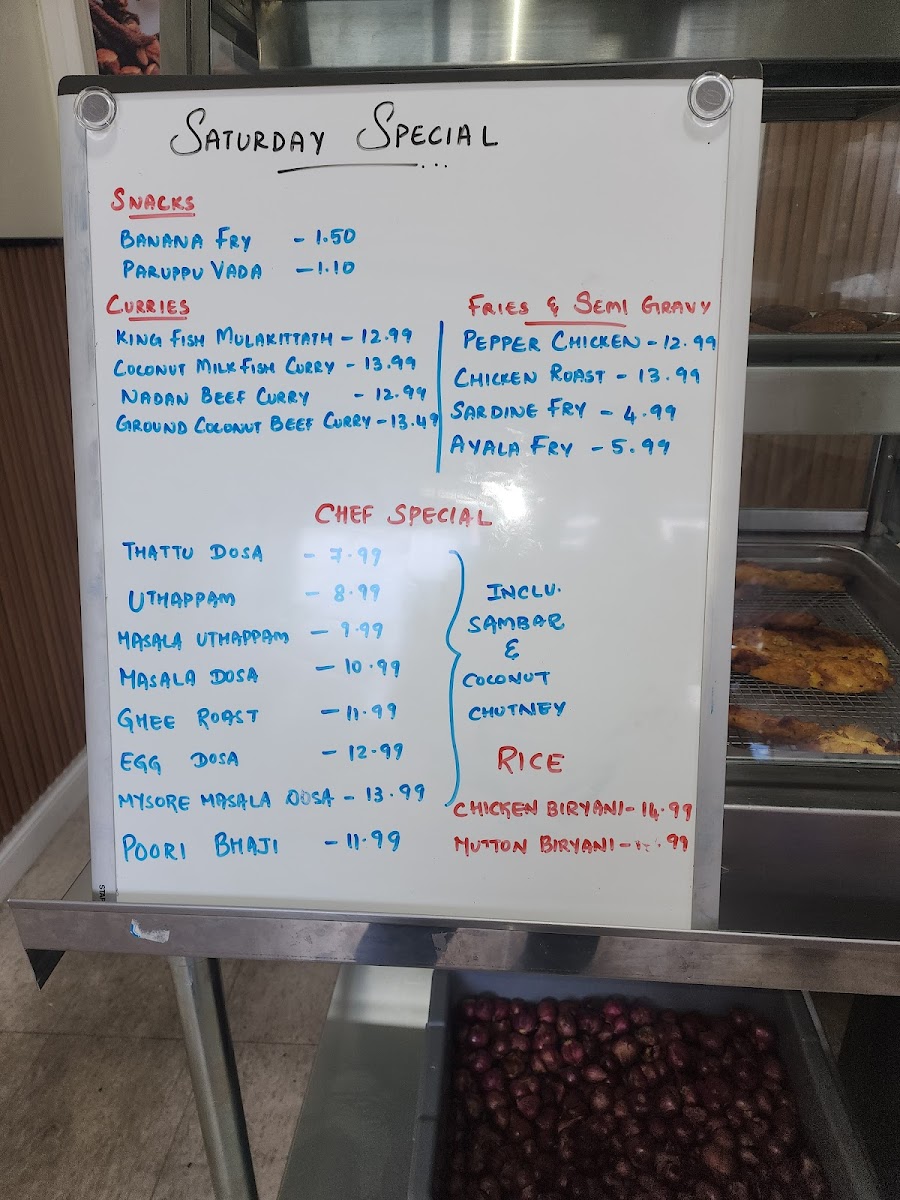 SATURDAY SPECIAL
SNACKS
BANANA FRY - 1.50
PARUPPU VADA - 1.10
CURRIES
KING FISH MULAKITTATH - 12.99
COCONUT MILK FISH CURRY - 13.99
NADAN BEEF CURRY - 12.99
GROUND COCONUT BEEF CURRY - 13.49
FRIES & SEMI GRAVY
PEPPER CHICKEN - 12.99
CHICKEN ROAST - 13.99
SARDINE FRY - 4.99
AYALA FRY - 5.99
CHEF SPECIAL
THATTU DOSA - 7.99
UTHAPPAM - 8.99
MASALA UTHAPPAM - 9.99
MASALA DOSA - 10.99
GHEE ROAST - 11.99
EGG DOSA - 12.99
MYSORE MASALA DOSA - 13.99
POORI BHAJI - 11.99
INCLU.
SAMBAR
&
COCONUT
CHUTNEY
RICE
CHICKEN BIRYANI - 14.99
MUTTON BIRYANI -